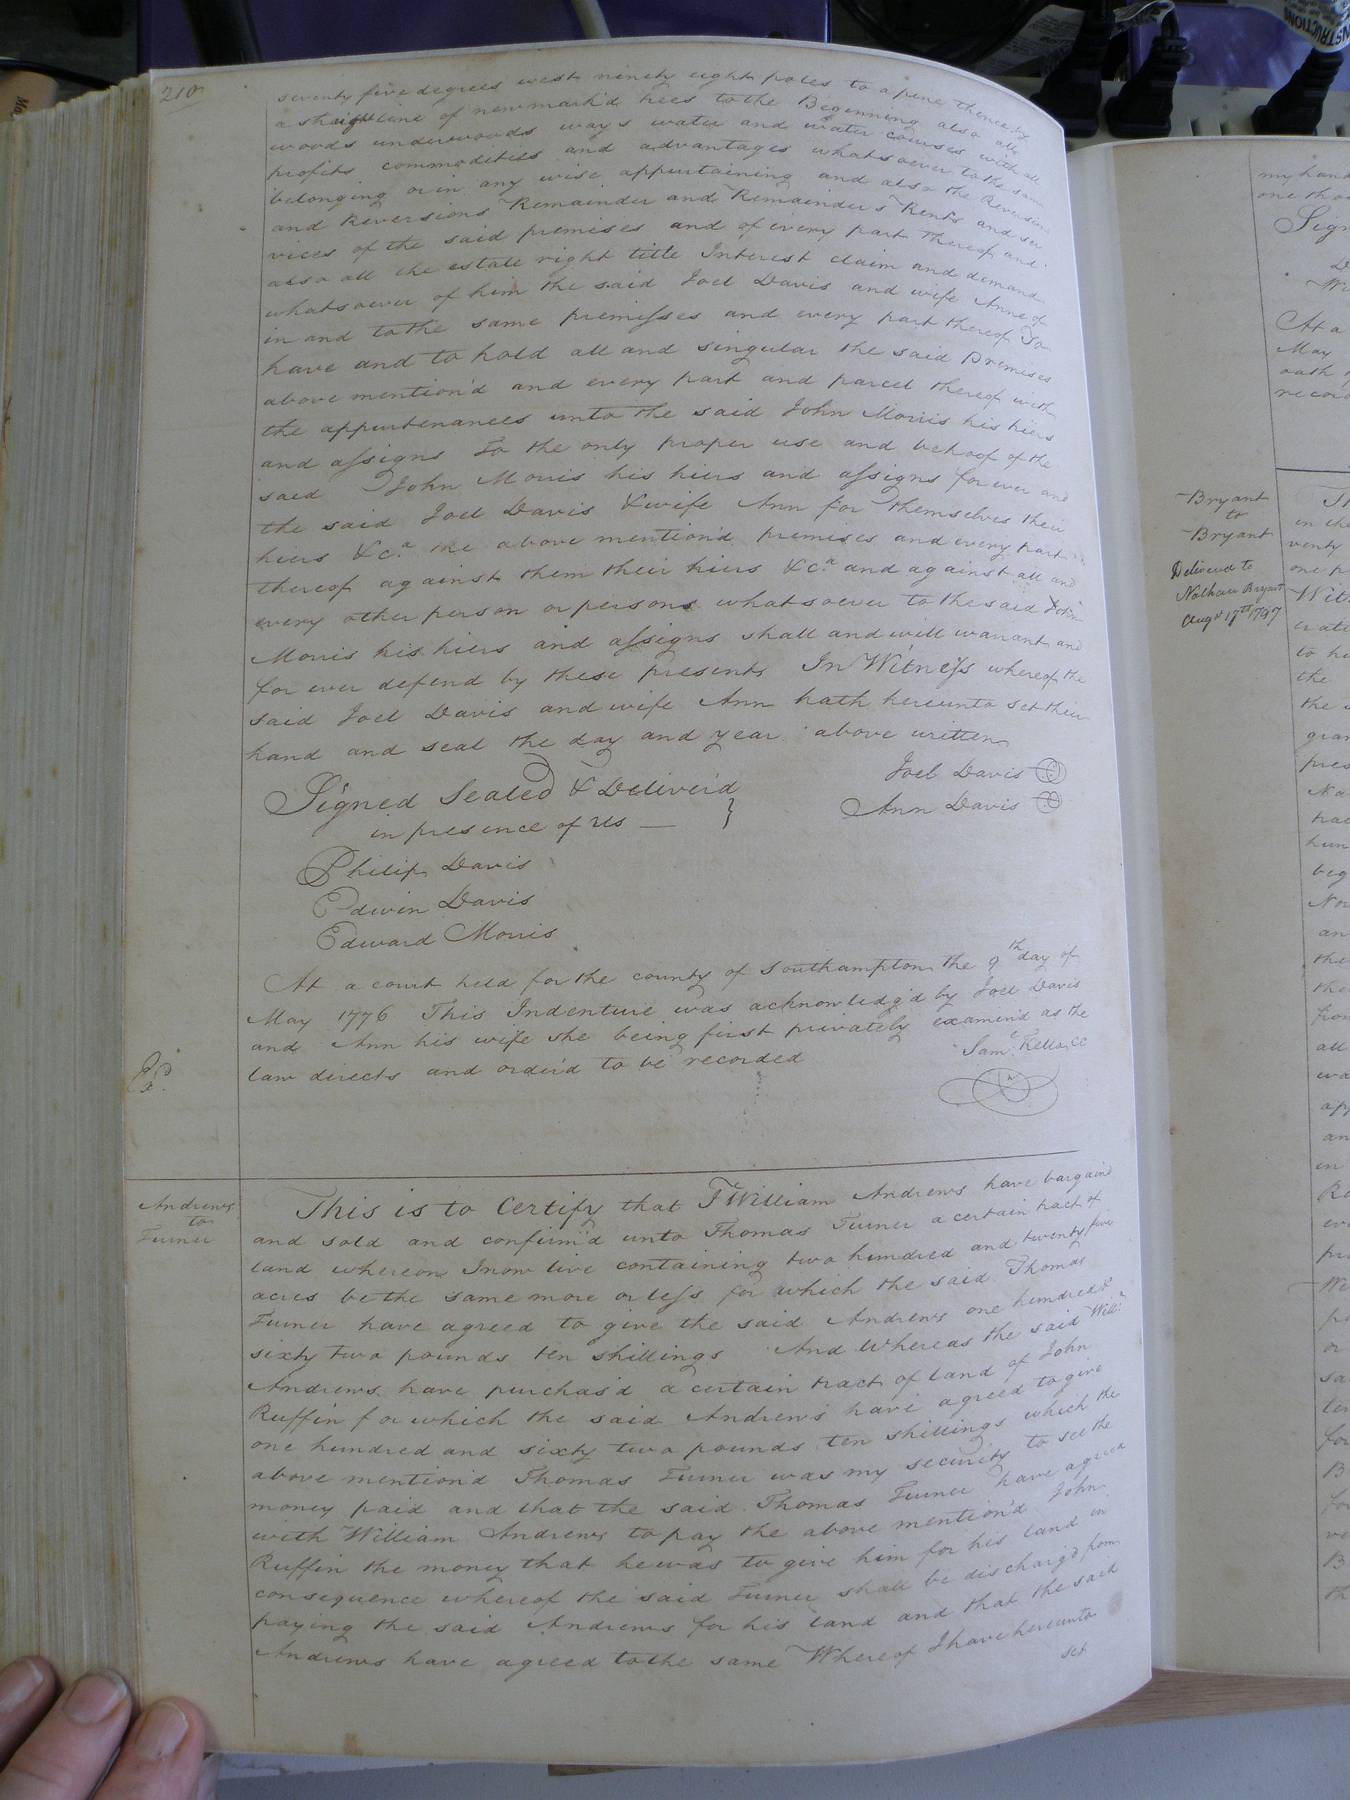 210
seventy five degrees west ninety eight poles to a pine thence by
a straight line of new mark'd trees to the Beginning also all
woods underwoods ways water and water courses with all
profits commodities and advantages whatsoever to the same
belonging or in any wise appurtaining and also the Reversion
and Reversions Remainder and Remainder's Rents and ser
vices of the said premises and of every part thereof and
also all the estate right title Interest claim and demand
whatsoever of him the said Joel Davis and wife Anne of
in and to the same premisses and every part thereof To
have and to hold all and singular the said Premises
above mention'd and every part and parcel thereof with
the appurtenances unto the said John Morris his hiers
and assigns To the only proper use and behoof of the
said John Morris his hiers and assigns for ever and
the said Joel Davis & wife Ann for themselves their
hiers &c.a the above mention'd premises and every part
thereof against them their hiers &c.a and against all and
every other person or persons whatsoever to the said John
Morris his hiers and assigns shall and will warrant and
for ever defend by these presents In Witness whereof the
said Joel Davis and wife Ann hath hereunto set their
hand and seal the day and year above written
Joel Davis
Signed Sealed & Deliver'd
Ann Davis
in presence of us
Philip Davis
Edwin Davis
Edward Morris
At a court held for the county of Southampton the 9th day of
May 1776 This Indenture was acknowledg'd by Joel Davis
and Ann his wife she being first privately examin'd as the
law directs and order'd to be recorded
Saml. Kello CC
Ex.
Andrews
to
Turner
This is to Certify that I William Andrews have bargain
and sold and confirm'd unto Thomas Turner a certain tract of
land whereon I now live containing two hundred and twenty five
acres be the same more or less for which the said Thomas
Turner have agreed to give the said Andrews one hundred &
sixty two pounds ten shillings And Whereas the said Willm.
Andrews have purchas'd a certain tract of land of John
Ruffin for which the said Andrews have agreed to give
one hundred and sixty two pounds ten shillings which the
above mention'd Thomas Turner was my security to see the
money paid and that the said Thomas Turner have agreed
with William Andrews to pay the above mention'd John
Ruffin the money that he was to give him for his land in
consequence whereof the said Turner shall be discharg'd from
paying the said Andrews for his land and that the said
Andrews have agreed to the same Whereof I have hereunto
set
my hand
Sign
At a
May
oath
Bryant
to
Bryant
Delivered to
Nathan Bryant
Augst 17th 1797
in the
venty
one
Wit
to
the
the